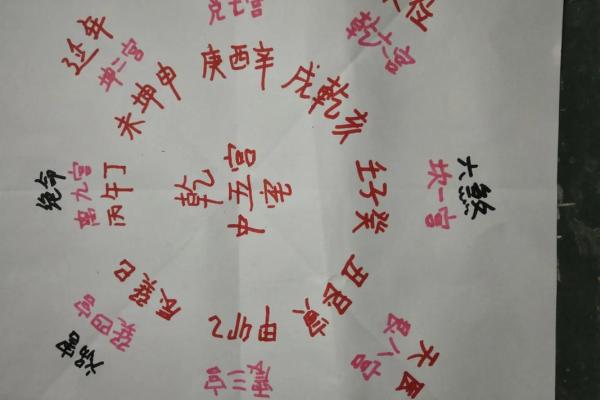 兑七宫
庚酉辛
延年
坤二宫
未坤申
乾六宫
戌乾亥
绝命
离九宫
丙午丁
乾宅
中五宫
壬子癸
坎一宫
大煞
辰巽巳
巽四宫
祸害
甲卯乙
震三宫
丑艮寅
艮八宫
天医